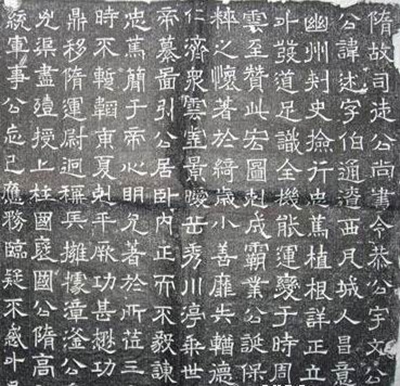 隋故司徒公尚書令恭公宇文公
公諱述字伯通遺西凡城人昌意
幽州刾史撿行忠篤植根詳正立
斗發道足識全機能運變于時周
雲至贊此宏圖尅成霸業公誕保
粹之懷著於綺歲小善靡失輶德
仁濟衆雲峯景曖岳秀川渟乘世
帝纂啚引公居卧内正而不毅諫
忠篤簡于帝心明允著於所莅三
時不暫韜東夏尅平厥功甚懋功
鼎移隋運尉迥稱兵擁據漳滏公
兇渠盡殪授上柱國襃國公隋高
綂軍事公忘己應務臨疑不惑斗